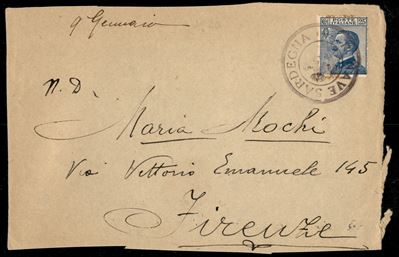 9 Gennaio
NAVE SARDEGNA
N. D.
Maria Mochi
Via Vittorio Emanuele 145
Firenze